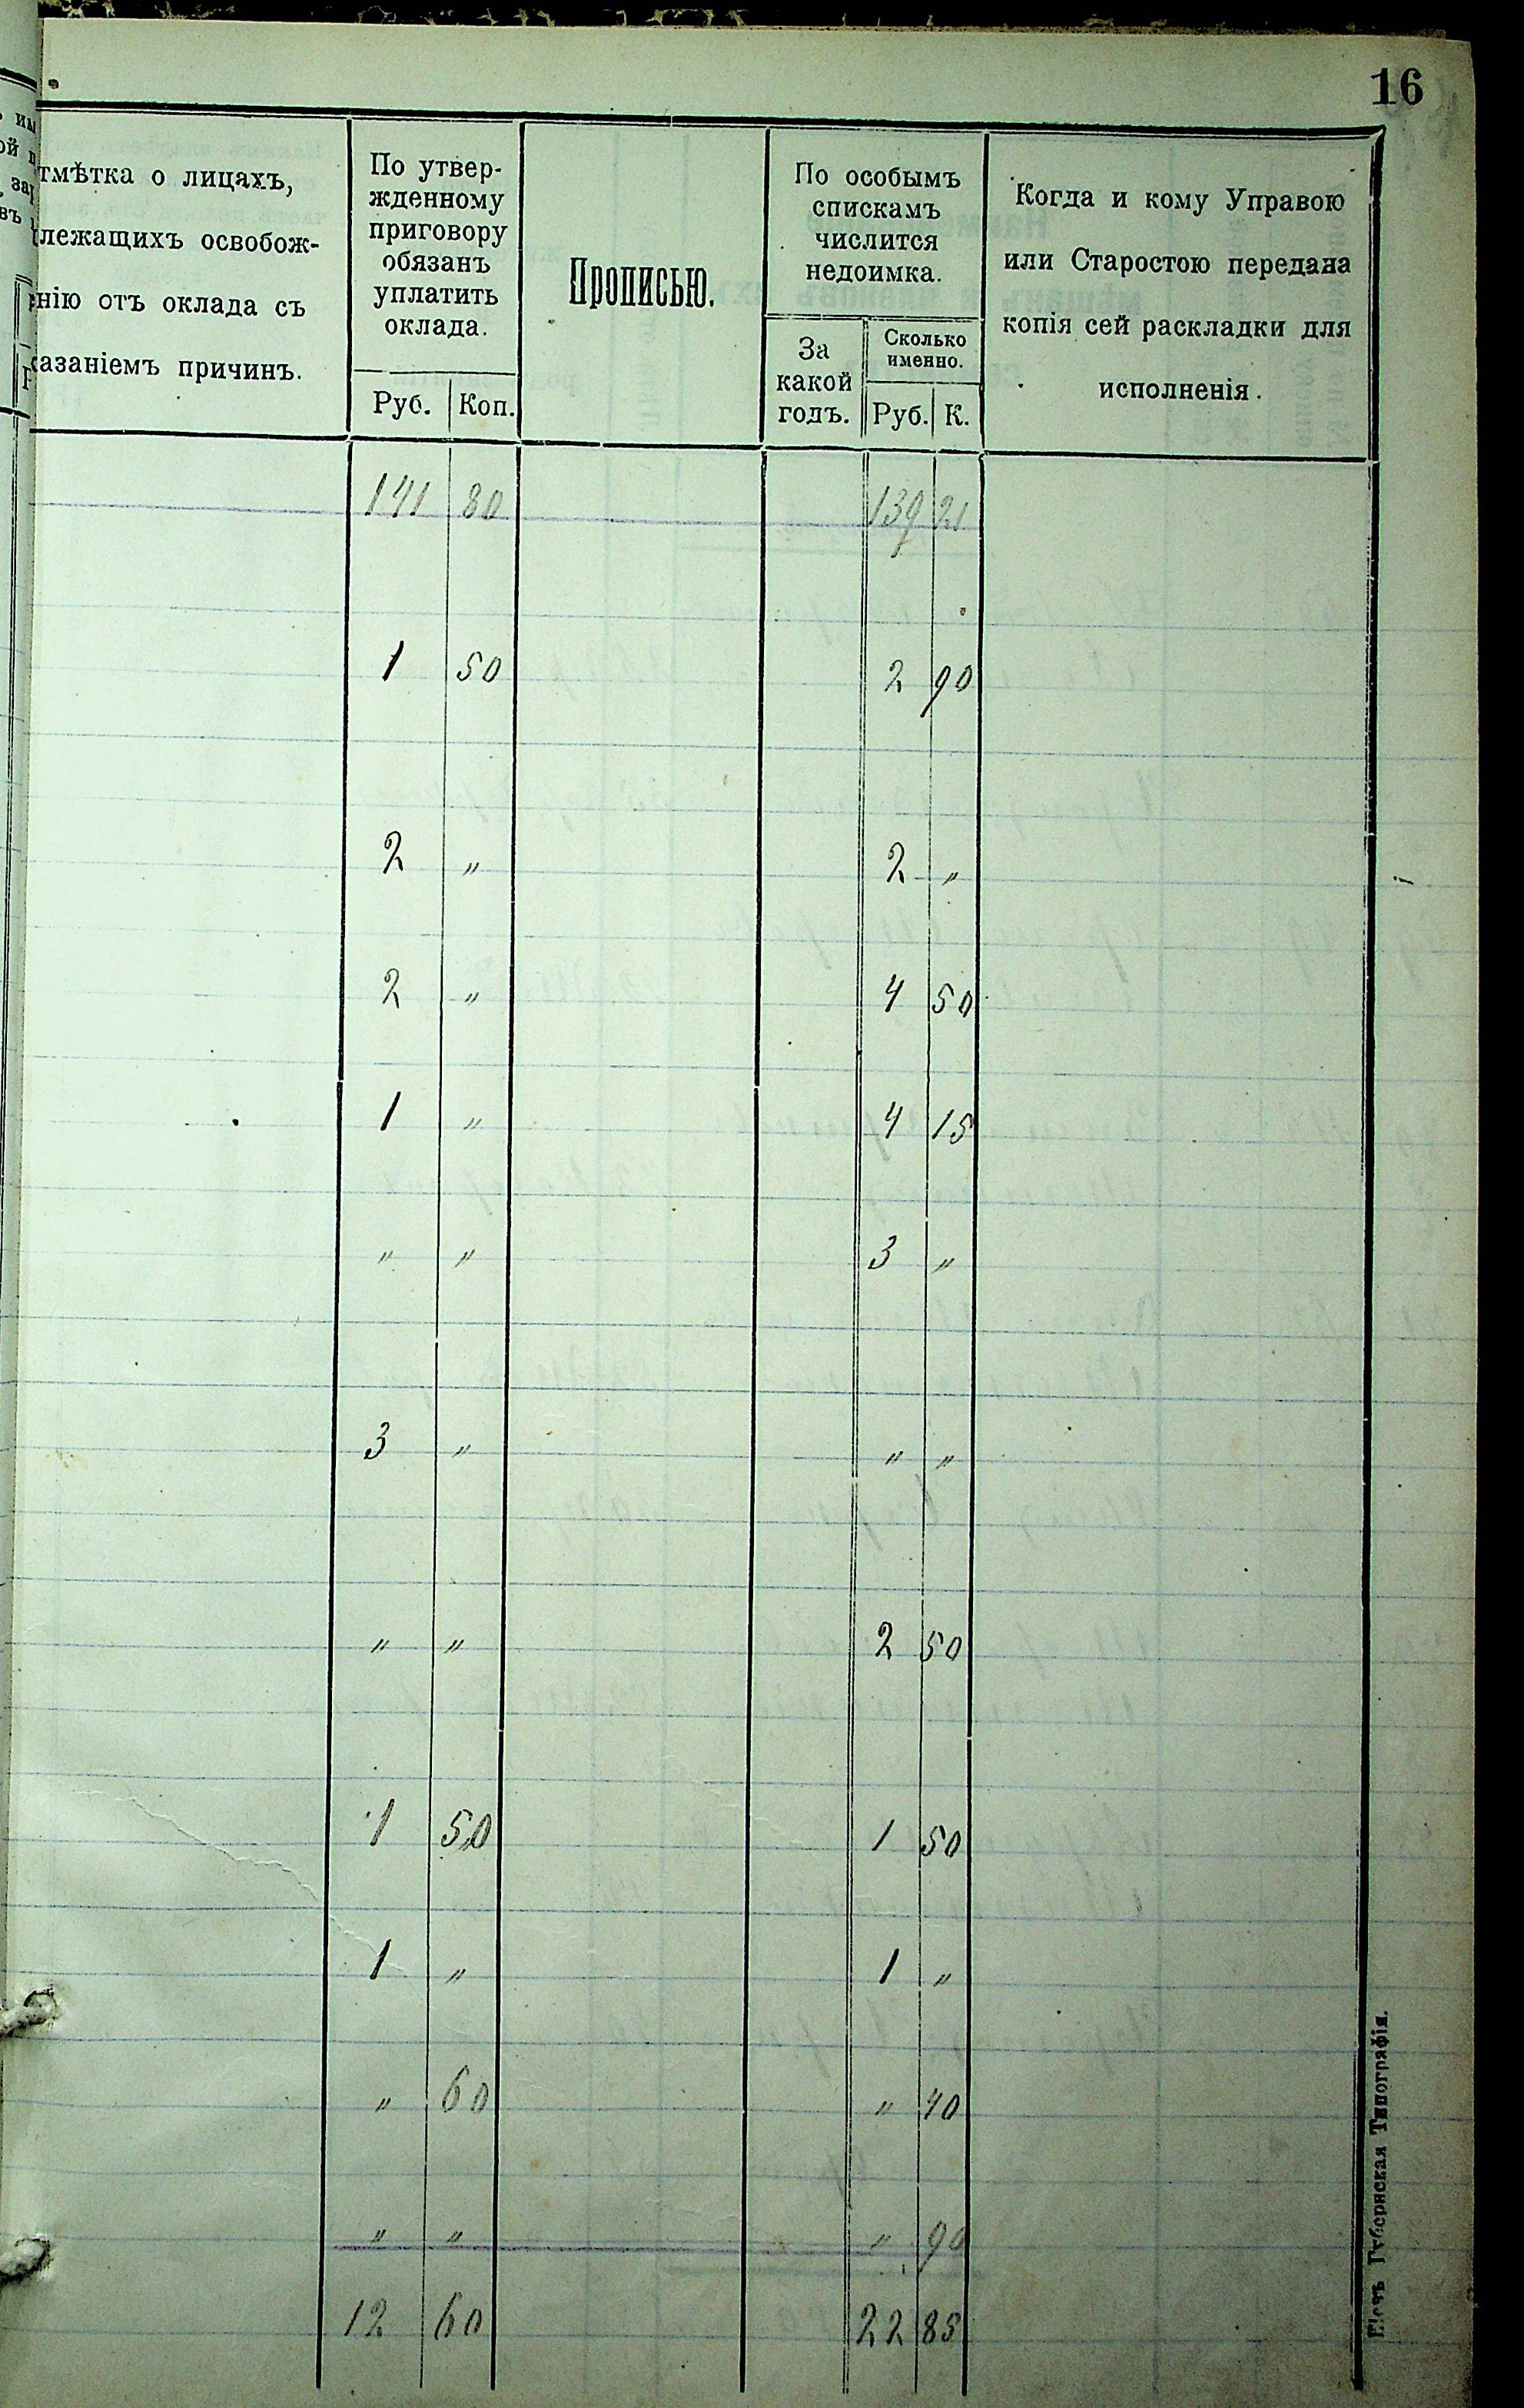 16
тмѣтка о лицахъ,
лежащихъ освобож-
нію отъ оклада съ
казаніемъ причинъ.
По утвер-
жденному
приговору
обязанъ
уплатить
оклада.
Руб. Коп.
Прописью.
По особымъ
спискамъ
числится
недоимка.
За
какой
годъ.
Сколько
именно.
Руб. К.
Когда и кому Управою
или Старостою передана
копія сей раскладки для
исполненія.
141 80 139 21
1 50 2 90
2 „ 2 „
2 „ 4 50
1 „ 4 15
„ „ 3 „
3 „ „ „
„ „ 2 50
1 50 1 50
1 „ 1 „
„ 60 „ 40
„ „ „ 90
12 60 22 85
Кіевъ Губернская Типографія.